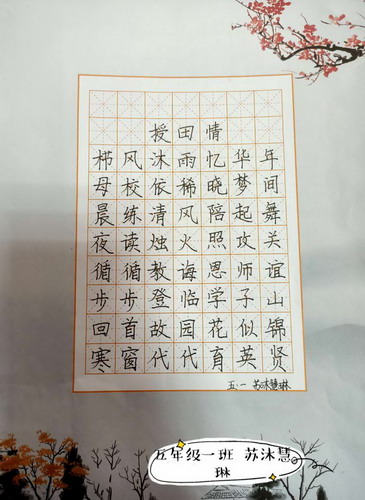 授田情
栉风沐雨忆华年
母校依稀晓梦间
晨练清风陪起舞
夜读烛火照攻关
循循教诲恩师谊
步步登临学子山
回首故园花似锦
寒窗代代育英贤
五·一 苏沐慧琳
五年级一班 苏沐慧
琳